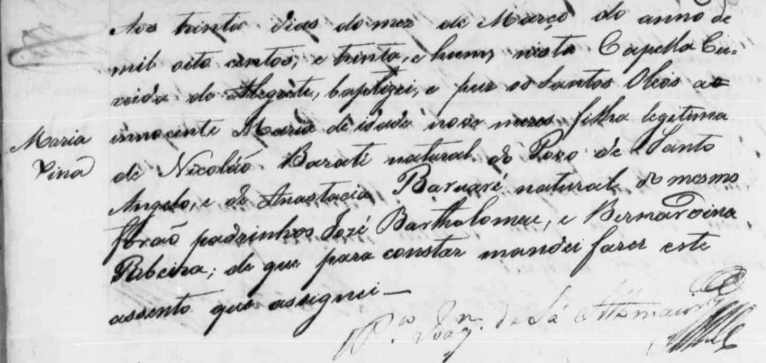 Aos trinta dias do mez de Março do anno de
mil oito centos, e trinta, e hum, nesta Capella Cu-
rada do Alegrete, baptizei, e puz os Santos Oleos a
Maria innocente Maria de idade nove mezes filha legitima
de Nicoláo Barati natural do Povo de Santo
Angelo, e de Anastacia Baruaré natural do mesmo
forão padrinhos José Bartholomeu, e Bernardina
Ribeira; de que para constar mandei fazer este
assento que assignei—
Joaq.m de Sá